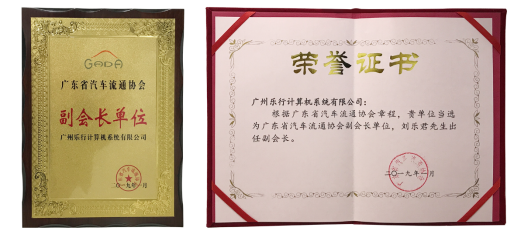 GADA
广东省汽车流通协会
副会长单位
广州乐行计算机系统有限公司
二〇一九年 月
荣誉证书
广州乐行计算机系统有限公司：
根据广东省汽车流通协会章程，贵单位当选
为广东省汽车流通协会副会长单位，刘乐君先生出
任副会长。
二〇一九年 月